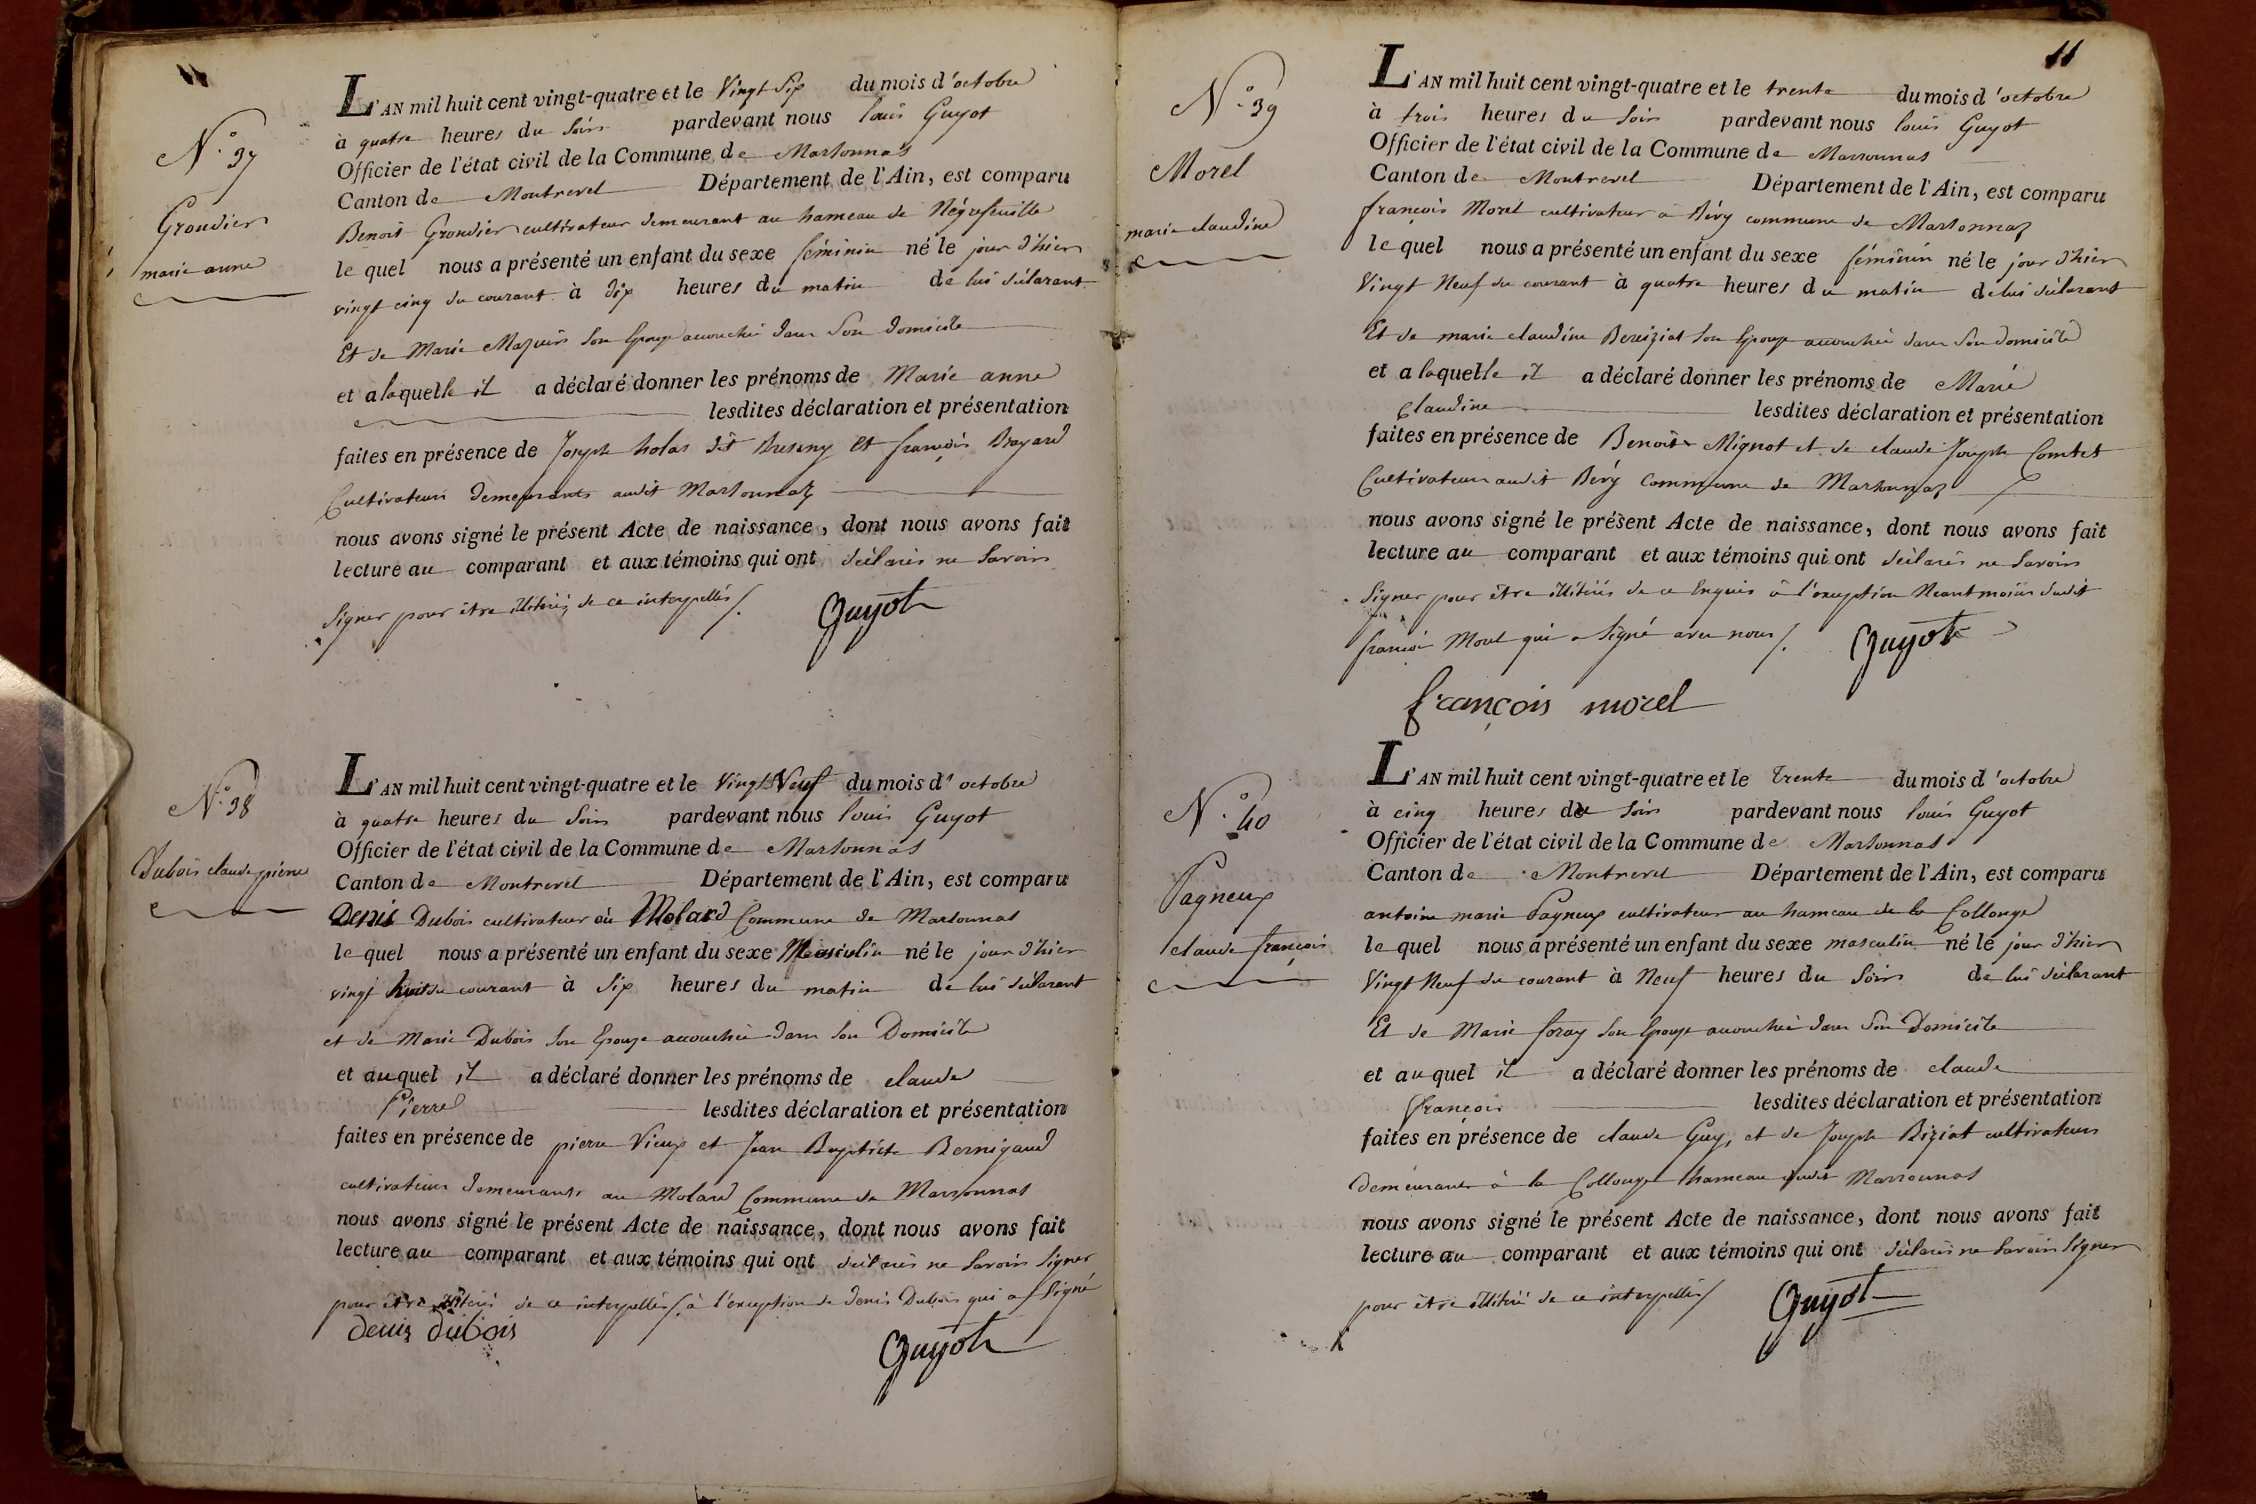 N.° 37
Grondier
marie anne
L'AN mil huit cent vingt-quatre et le Vingt Six du mois d'octobre
à quatre heures du Soir pardevant nous louis Guyot
Officier de l'état civil de la Commune de Marsonnas
Canton de Montrevel Département de l'Ain, est comparu
Benoit Grondier cultivateur demeurant au hameau de Négrefeuille
le quel nous a présenté un enfant du sexe féminin né le jour d'hier
vingt cinq du courant à dix heures du matin de lui déclarant
Et de Marie Mazuir son Epouse accouchée dans son domicile
et a laquelle il a déclaré donner les prénoms de Marie anne
lesdites déclaration et présentation
faites en présence de Joseph holas dit Bresny Et françois Bayard
Cultivateurs demeurants audit Marsonnaz
nous avons signé le présent Acte de naissance, dont nous avons fait
lecture au comparant et aux témoins qui ont déclarés ne Savoir
Signer pour être illitérés de ce interpellés /.
Guyot
N.° 38
Dubois claude pierre
L'AN mil huit cent vingt-quatre et le Vingt Neuf du mois d'octobre
à quatre heures du Soir pardevant nous louis Guyot
Officier de l'état civil de la Commune de Marsonnas
Canton de Montrevel Département de l'Ain, est comparu
Denis Dubois cultivateur au Molard Commune de Marsonnas
le quel nous a présenté un enfant du sexe Masculin né le jour d'hier
vingt huit du courant à Six heures du matin de lui déclarant
et de Marie Dubois son Epouse accouchée dans son Domicile
et auquel il a déclaré donner les prénoms de claude
Pierre lesdites déclaration et présentation
faites en présence de pierre Vieux et Jean Baptiste Bernigaud
cultivateurs demeurants au Molard Commune de Marsonnas
nous avons signé le présent Acte de naissance, dont nous avons fait
lecture au comparant et aux témoins qui ont déclarés ne Savoir Signer
pour être illitérés de ce interpellés /. à l'exception de denis Dubois qui a Signé
denis dubois
Guyot
11
N.° 39
Morel
marie claudine
L'AN mil huit cent vingt-quatre et le trente du mois d'octobre
à trois heures du Soir pardevant nous louis Guyot
Officier de l'état civil de la Commune de Marsonnas
Canton de Montrevel Département de l'Ain, est comparu
françois Morel cultivateur à Bévy commune de Marsonnaz
le quel nous a présenté un enfant du sexe féminin né le jour d'hier
Vingt Neuf du courant à quatre heures du matin de lui déclarant
Et de marie claudine Bereiziat son Epouse accouchée dans Son domicile
et a laquelle il a déclaré donner les prénoms de Marie
Claudine lesdites déclaration et présentation
faites en présence de Benoit Mignot et de claude Joseph Comtet
Cultivateurs audit Bévy Commune de Marsonnaz
nous avons signé le présent Acte de naissance, dont nous avons fait
lecture au comparant et aux témoins qui ont déclarés ne Savoir
Signer pour être illitérés de ce Enquis à l'exception Néantmoins dudit
françois Morel qui a Signé avec nous /.
Guyot
françois morel
N.° 40
Pagneux
claude françois
L'AN mil huit cent vingt-quatre et le Trente du mois d'octobre
à cinq heures du Soir pardevant nous louis Guyot
Officier de l'état civil de la Commune de Marsonnas
Canton de Montrevel Département de l'Ain, est comparu
antoine marie Pagneux cultivateur au hameau de la Collonge
le quel nous a présenté un enfant du sexe masculin né le jour d'hier
Vingt Neuf du courant à Neuf heures du Soir de lui déclarant
Et de Marie foray Son Epouse accouchée dans Son Domicile
et auquel il a déclaré donner les prénoms de claude
françois lesdites déclaration et présentation
faites en présence de claude Guy, et de Joseph Biziat cultivateurs
demeurants à la Collonge hameau dudit Marsonnas
nous avons signé le présent Acte de naissance, dont nous avons fait
lecture au comparant et aux témoins qui ont déclarés ne Savoir Signer
pour être illitéré de ce interpellés /
Guyot